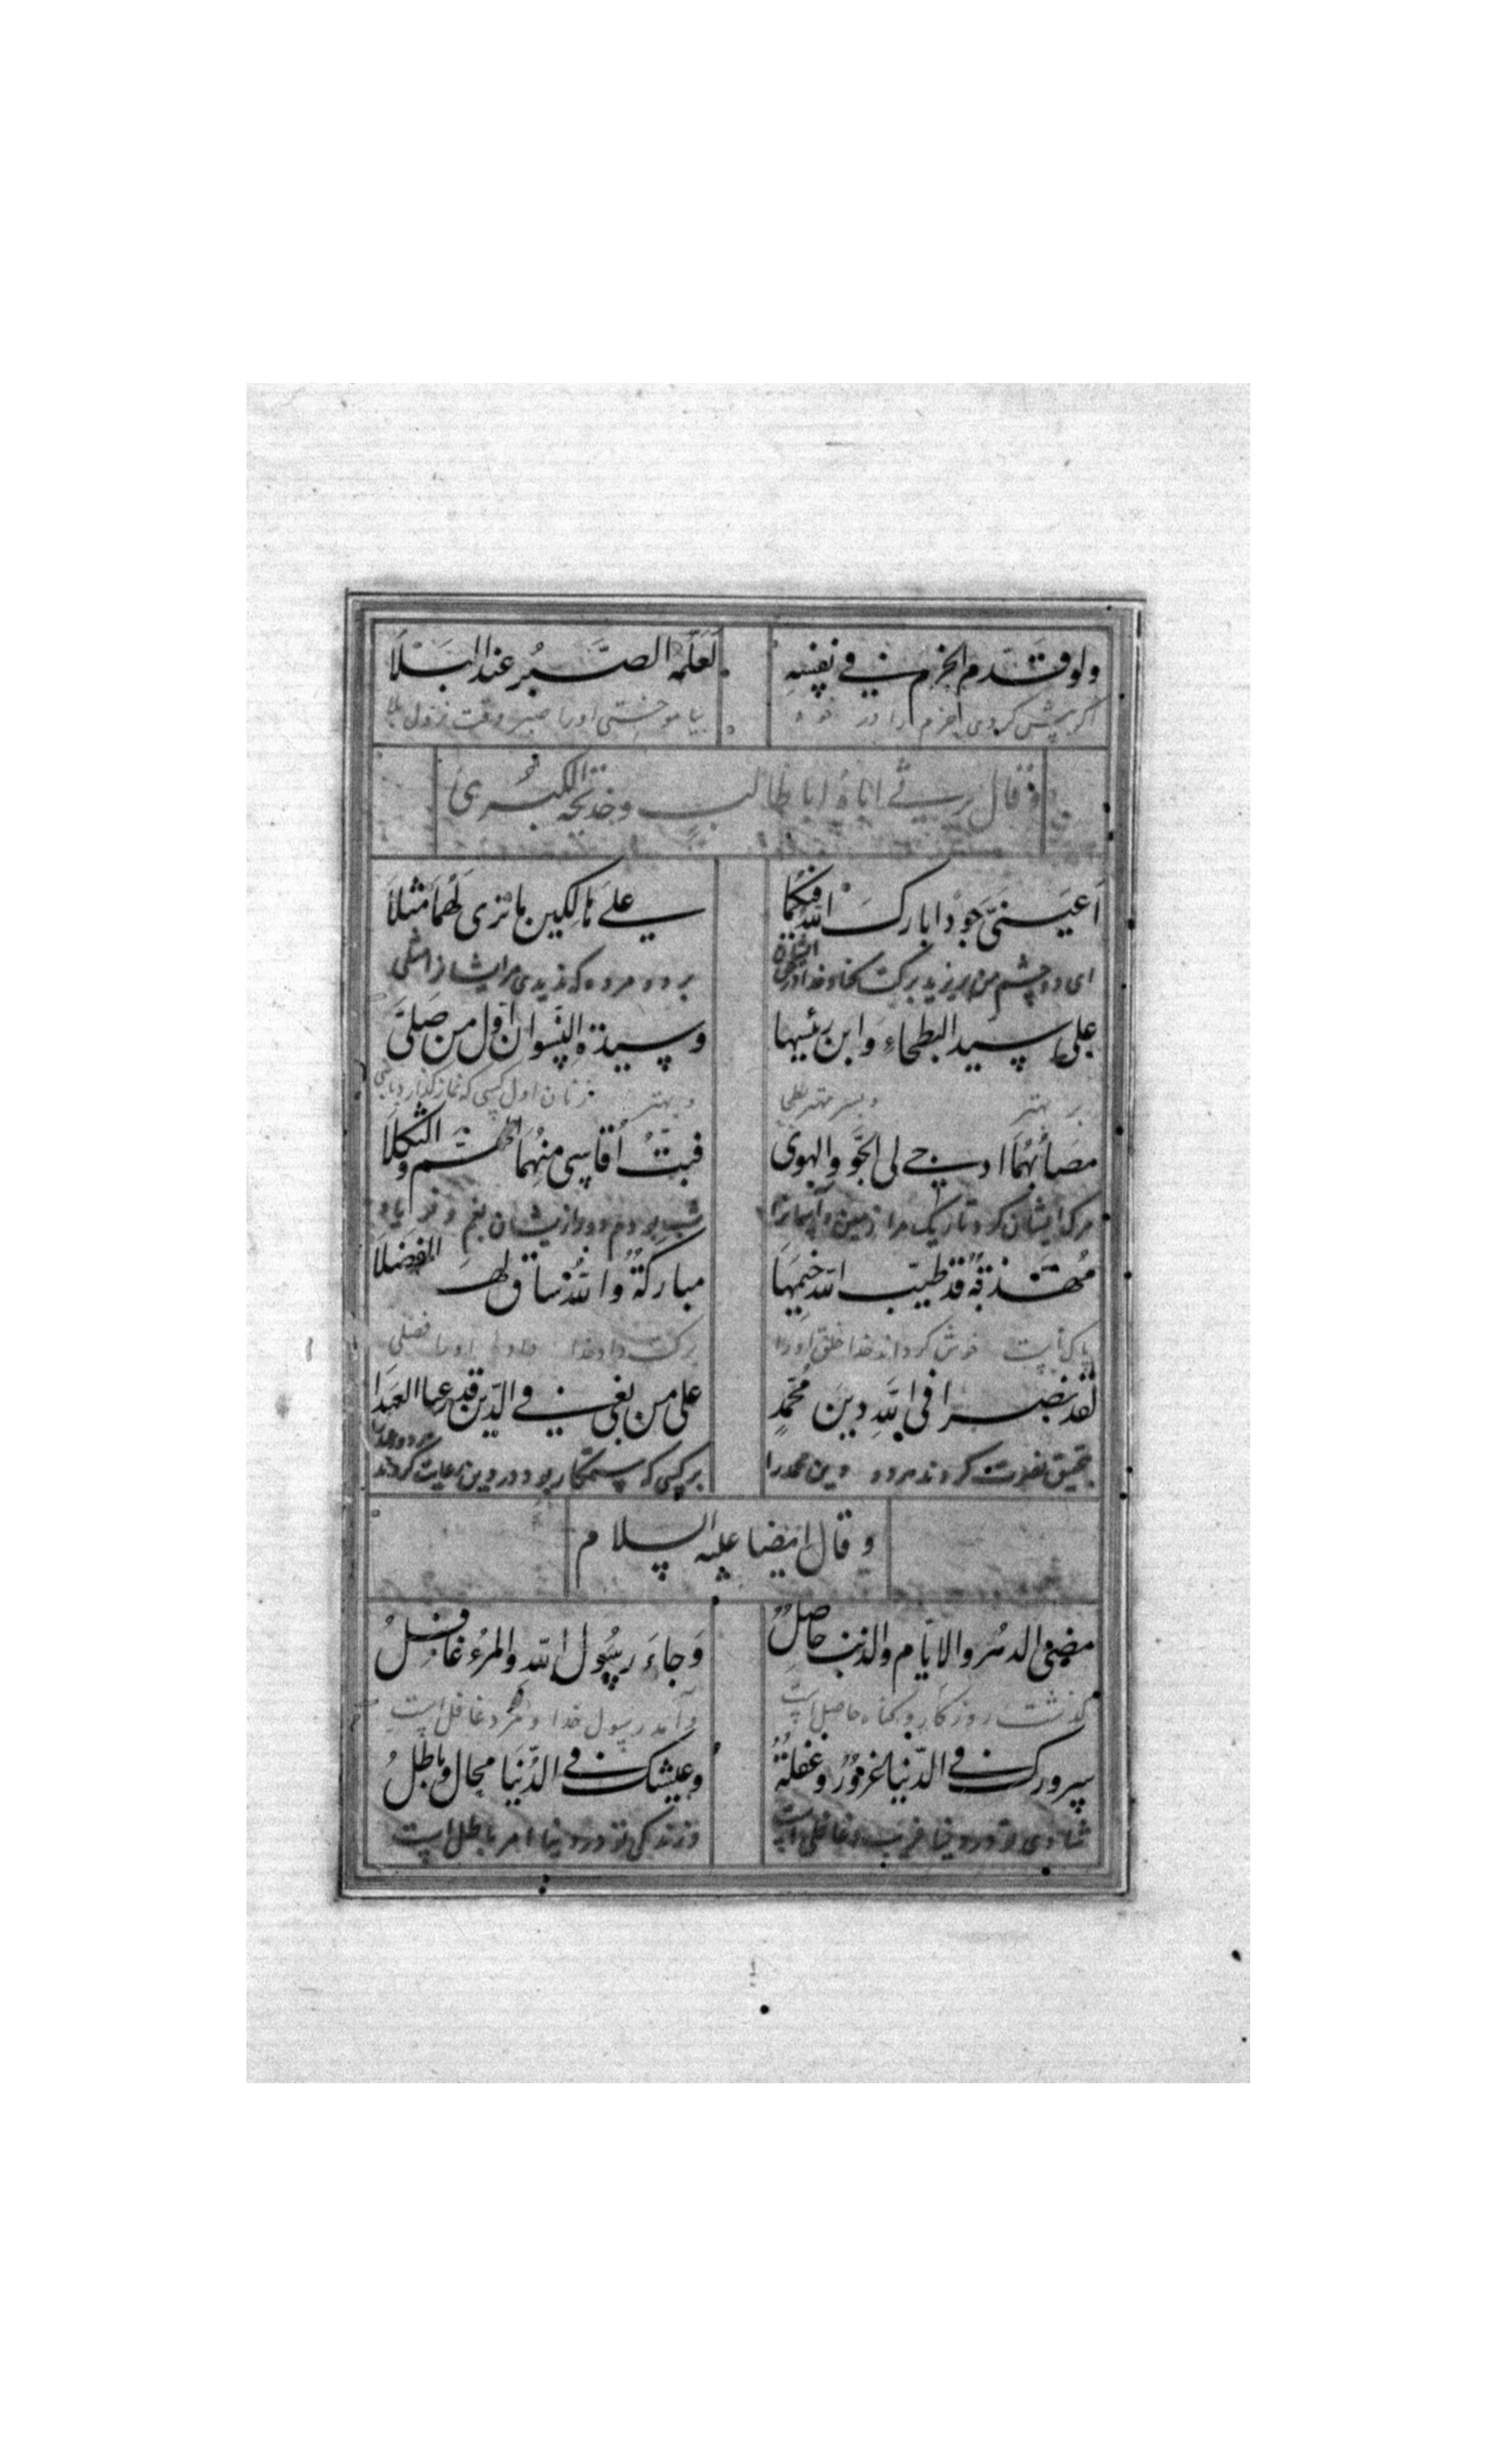 ولو قدّم الحزم في نفسه لعلّمه الصّبر عند البلا
اگر پیش کردی حزم را در خود بیاموختی اورا صبر وقت نزول بلا
و قال يرثي اباه ابا طالب وخديجة الكبرى
اَعَينيَّ جودا بارك الله فيكما على هالكين ما ترى لهما مثلا
ای دو چشم من بریزید برکت کناد خدا در برد و مرده که ندیدی مر ایشانرا مثلی
على سيد البطحاء وابن رئيسها وسيدة النسوان اول من صلّى
بر بهتر وپسر مهتر و بهتر زنان اول کسی که نماز گذارد
مصابهما ادجى لي الجوّ والهوى فبتّ اقاسي منهما الهمّ والثكلا
مرک ایشان کرد تاریک مرا زمین و شب بودم دور ازیشان بغم و
مهذبة قد طيّب الله خيمها مباركة والله ساق لها الفضلا
خوش کرداند خدا خلق اورا برکت داد خدا اورا فضلی
لقد نصرا في الله دين محمّد على من بغى في الدّين قد رعيا العهدا
بتحقیق نصرت کردند هر دو دین محمد را بر کسی که ستمکار بود در دین رعایت کردند
و قال ايضا عليه السلام
مضى الدهر والايّام والذنب حاصل وجاء رسول الله والمرء غافل
گذشت روزکار وکناه حاصل است وآمد رسول خدا و مرد غافل است
سرورك في الدّنيا غرور وغفلة وعيشك في الدّنيا محال وباطل
شادی تو در دنیا فریب وغافلی است وزندکی تو در دنیا امر باطل است